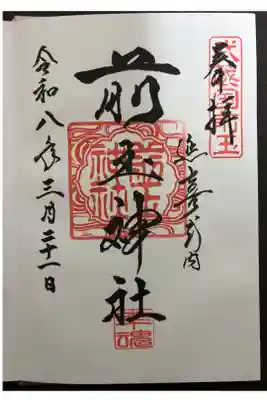 奉拝
延喜式内
前玉神社
幸魂
令和八年三月二十一日